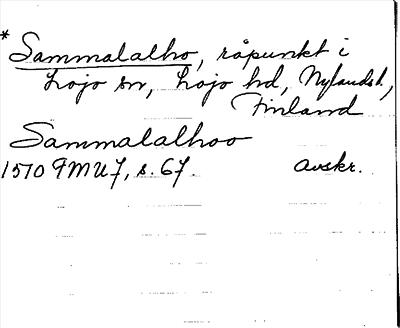 * Sammalalho, råpunkt i
Lojo sn, Lojo hd, Nylands l.,
Finland
Sammalalhoo
1510 FMU 7, s. 67. Avskr.